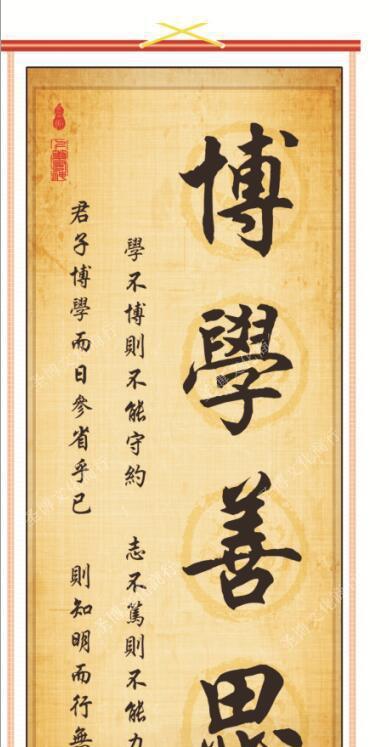 博學善思
學不博則不能守約 志不篤則不能力
君子博學而日參省乎己 則知明而行無